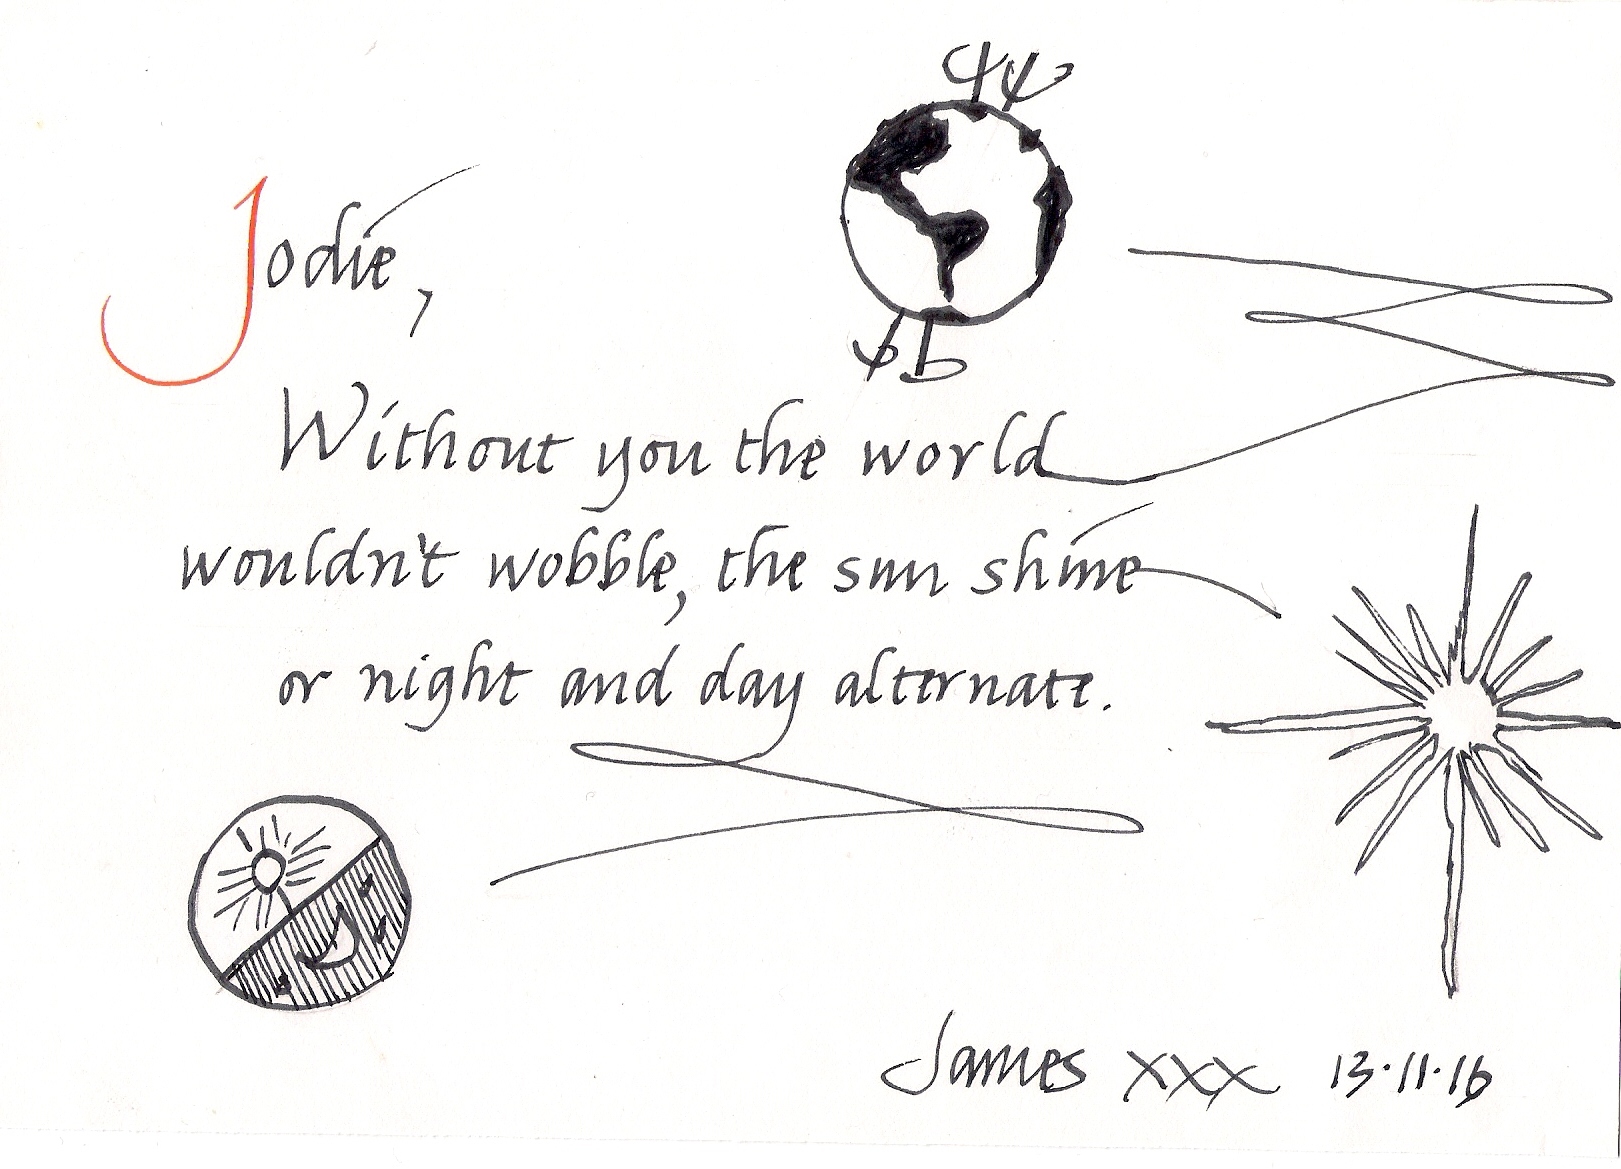 Jodie,
Without you the world
wouldn't wobble, the sun shine
or night and day alternate.
James xxx 13.11.16